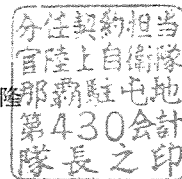 隆
分任契約担当
官陸上自衛隊
那覇駐屯地
第430会計
隊長之印